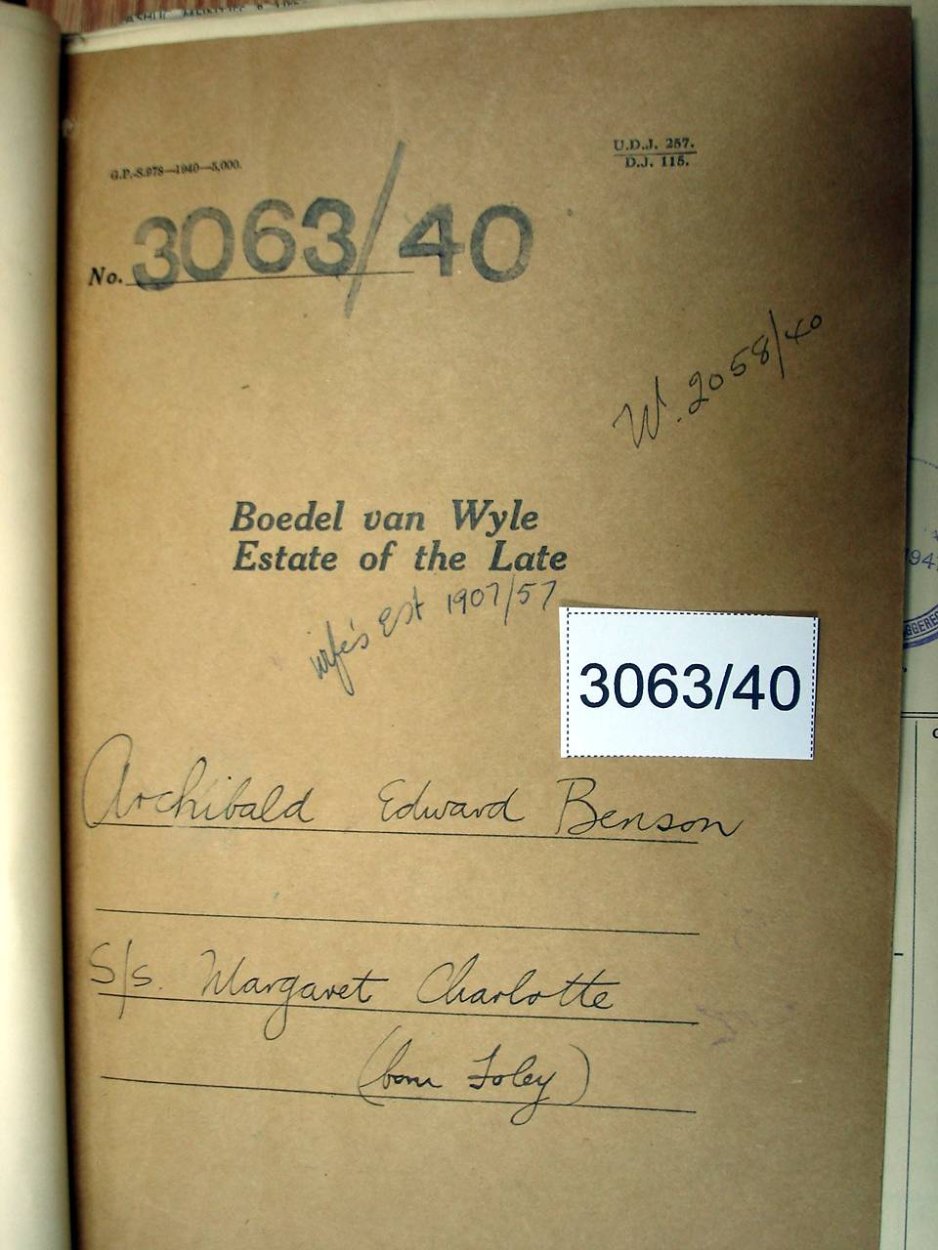 G.P.-S.978—1940—5,000.
U.D.J. 257.
D.J. 115.
No. 3063/40
W. 2058/40
Boedel van Wyle
Estate of the Late
wife's Est 1907/57
3063/40
Archibald Edward Benson
S/s. Margaret Charlotte
(born Foley)